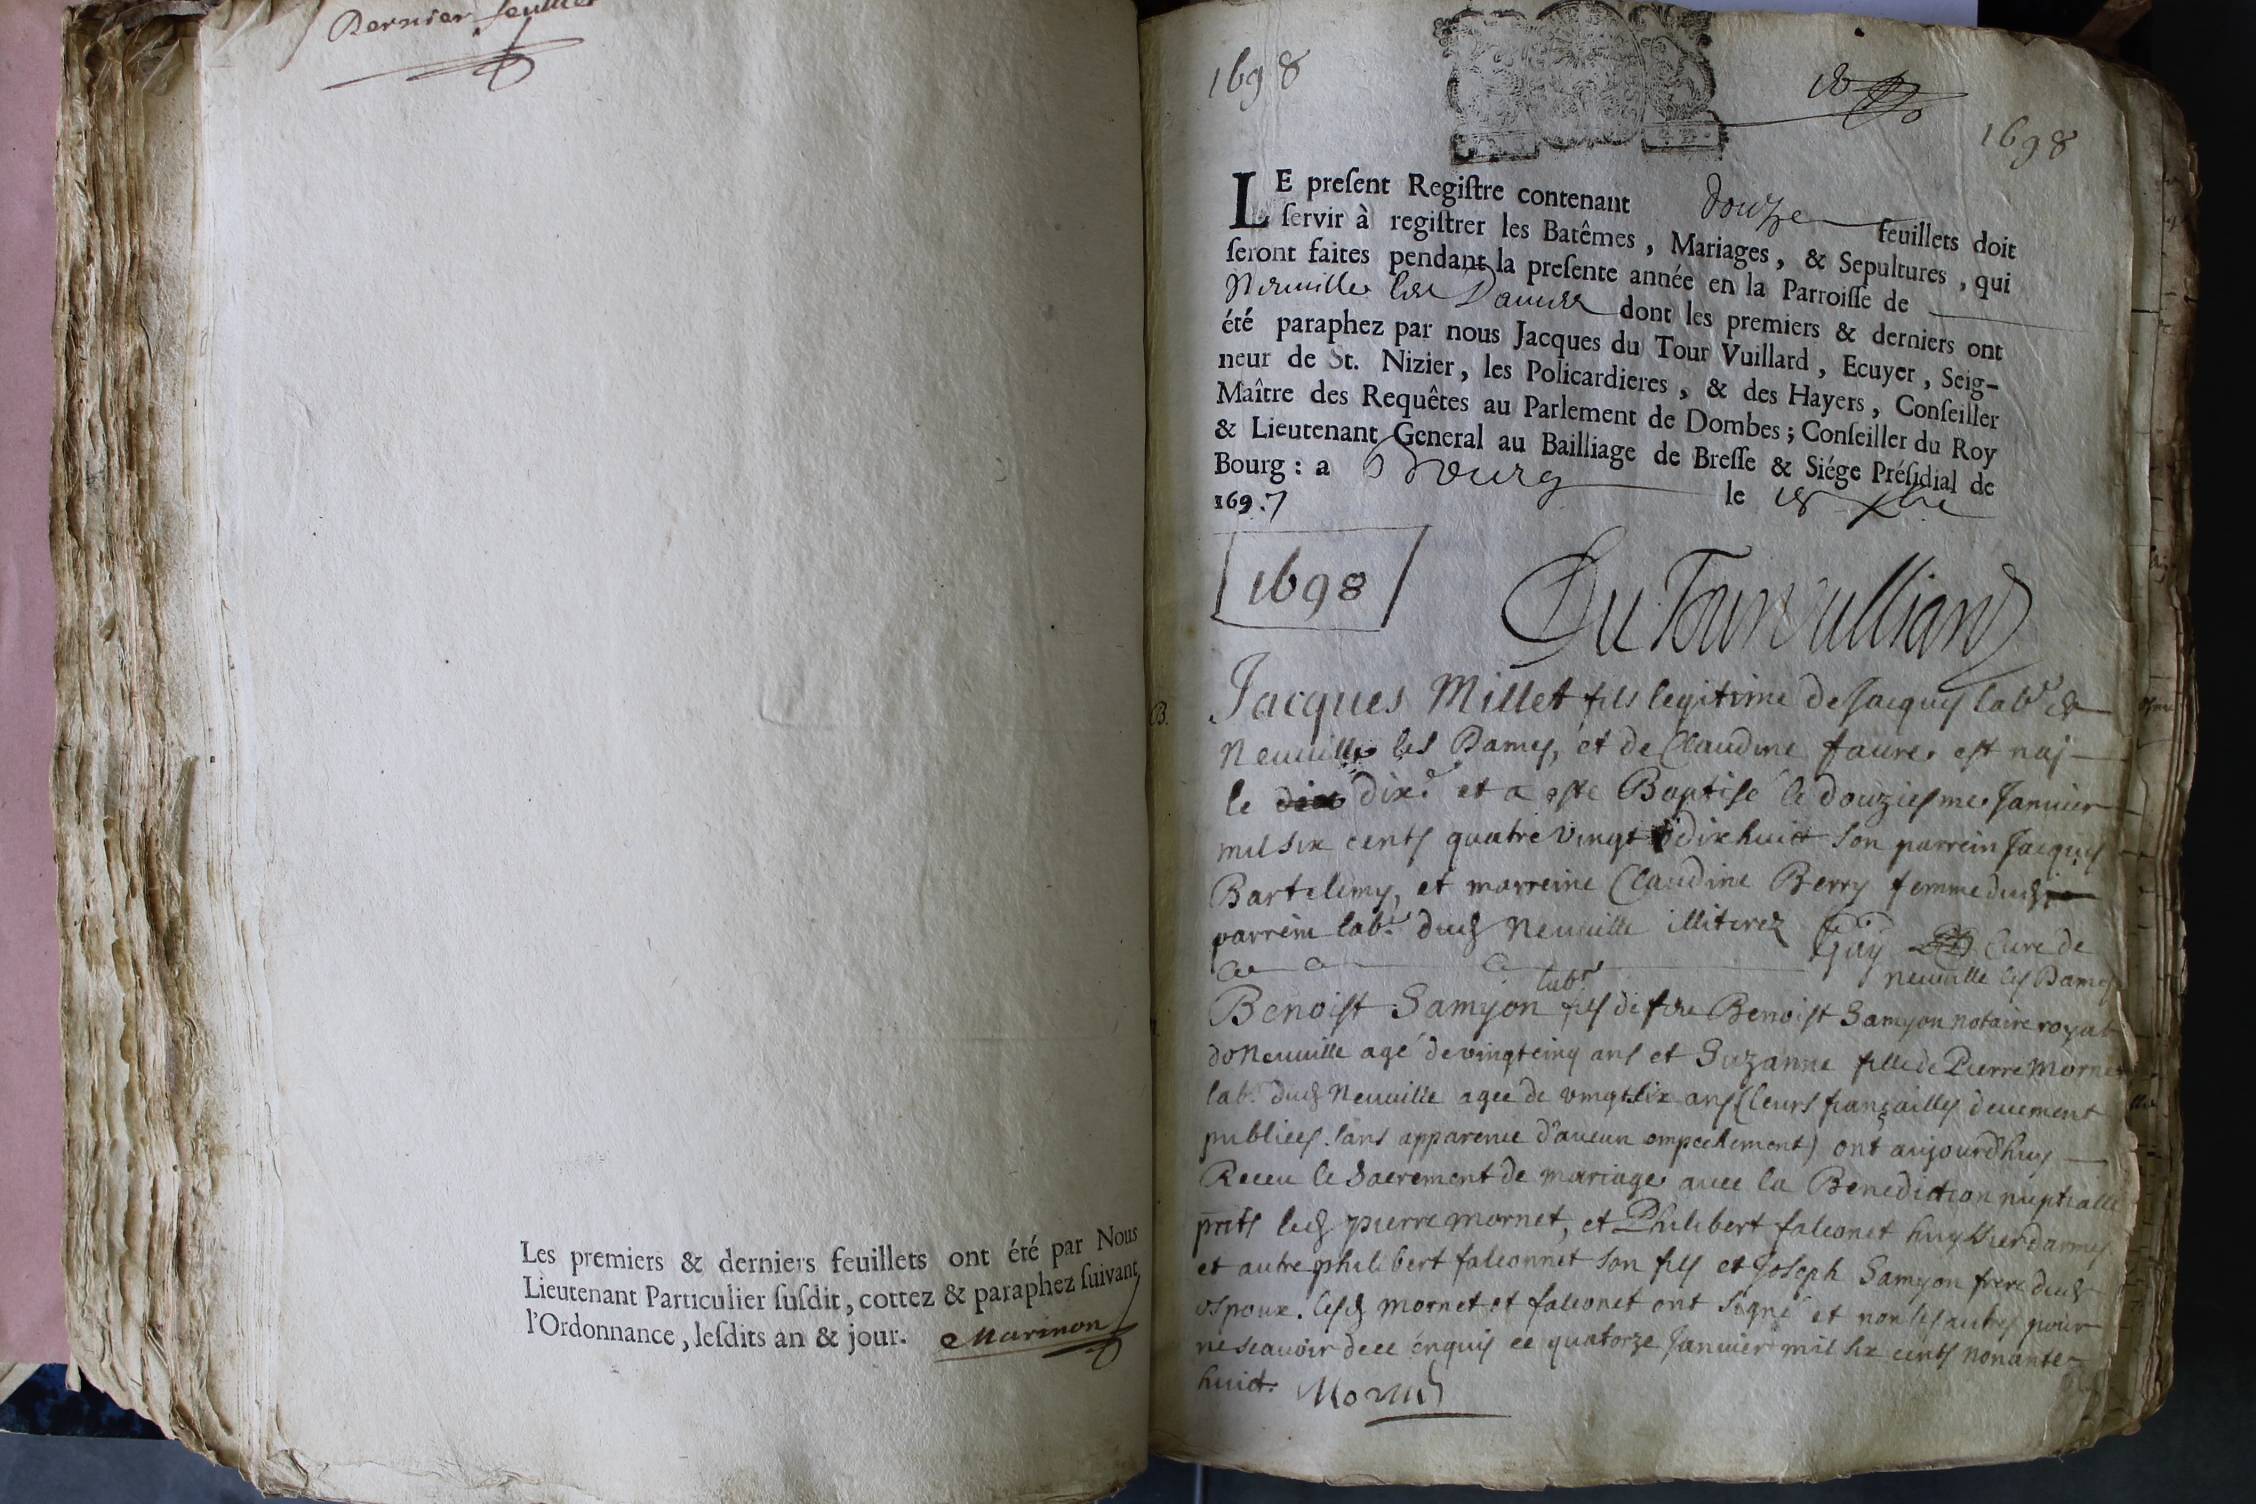 Dernier feuillet
Les premiers & derniers feuillets ont été par Nous
Lieutenant Particulier ſuſdit, cottez & paraphez ſuivant
l'Ordonnance, leſdits an & jour. Marinon
1698
1698
LE preſent Regiſtre contenant douze feuillets doit
ſervir à regiſtrer les Batêmes, Mariages, & Sepultures, qui
ſeront faites pendant la preſente année en la Parroiſſe de
Neuville les Dames dont les premiers & derniers ont
été paraphez par nous Jacques du Tour Vuillard, Ecuyer, Seig-
neur de St. Nizier, les Policardieres, & des Hayers, Conſeiller
Maître des Requêtes au Parlement de Dombes; Conſeiller du Roy
& Lieutenant General au Bailliage de Breſſe & Siége Préſidial de
Bourg: a Bourg le 18 xbre
1697
1698
Du Tour Vulliard
B.
Jacques Millet fils legitime de Jacques lab.r de
Neuuille les Dames, et de Claudine faure est nay
le dix.e et a este Baptisé le douziesme Januier
mil six cents quatre vingt dixhuict son parrein Jacques
Bartelemy, et marreine Claudine Berry femme dud
parrein lab.r dud Neuuille illiterez Guy Curé de
neuuille les Dames
Benoist Samyon lab.r fils de feu Benoist Samyon notaire royal
de Neuuille agé de vingtcinq ans et Suzanne fille de Pierre Mornet
lab.r dud Neuuille agee de vingtsix ans (leurs fiançailles deuement
publiees sans apparence d'aucun empechement) ont aujourdhuy
Receu le Sacrement de mariage auec la Benediction nuptialle
pnts led pierre mornet, et Philibert falconet huyssier d'armes
et autre philibert falconnet son fils et Joseph Samyon frere dud
espoux. lesd mornet et falconet ont signé et non les autres pour
ne scauoir de ce enquis ce quatorze Januier mil six cents nonante
huict. Mornet